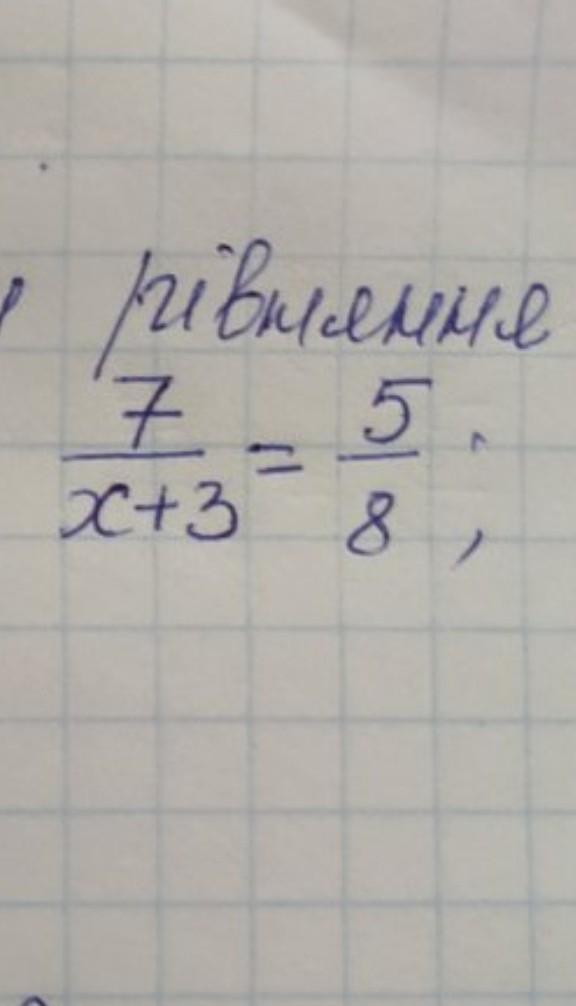 рівняння
7/(x+3) = 5/8;